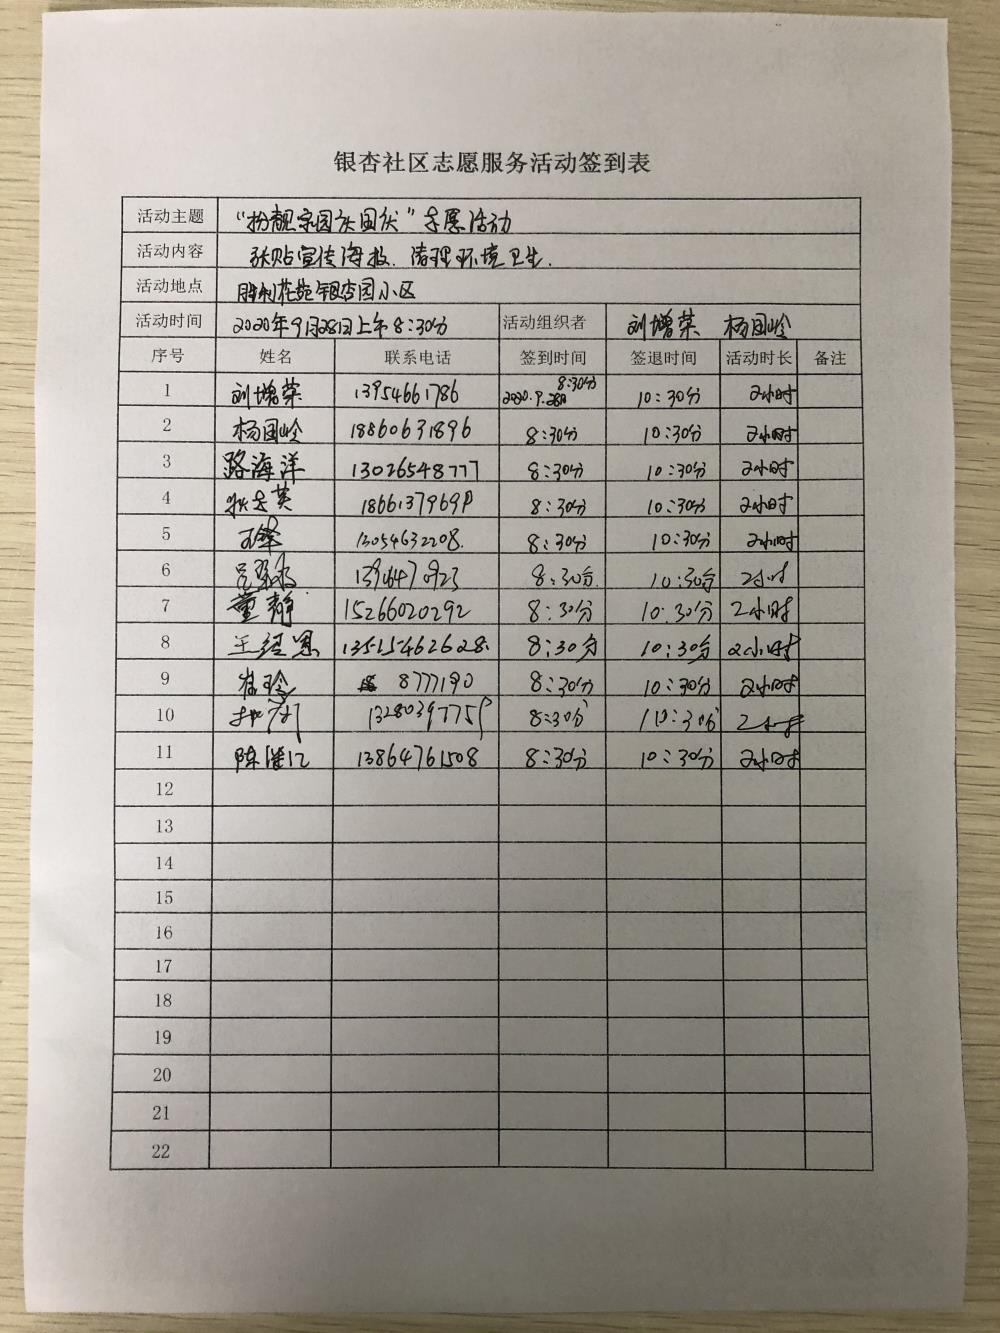 银杏社区志愿服务活动签到表
活动主题 “扮靓家园庆国庆”专属活动
活动内容 张贴宣传海报.清理环境卫生.
活动地点 胜利花苑银杏园小区
活动时间 2020年9月28日上午8:30分 活动组织者 刘增荣 杨国岭
序号 姓名 联系电话 签到时间 签退时间 活动时长 备注
1 刘增荣 13954661786 2020.9.28日 8:30分 10:30分 2小时
2 杨国岭 18860631896 8:30分 10:30分 2小时
3 路海洋 13026548777 8:30分 10:30分 2小时
4 8:30分 10:30分 2小时
5 13054632208. 8:30分 10:30分 2小时
6 8:30分. 10:30分 2小时
7 董静 15266020292 8:30分 10:30分 2小时
8 王经恩 13515462628. 8:30分 10:30分 2小时
9 崔玲 8777190 8:30分 10:30分 2小时
10 8:30分 10:30分 2小时
11 13864761508 8:30分 10:30分 2小时
12
13
14
15
16
17
18
19
20
21
22